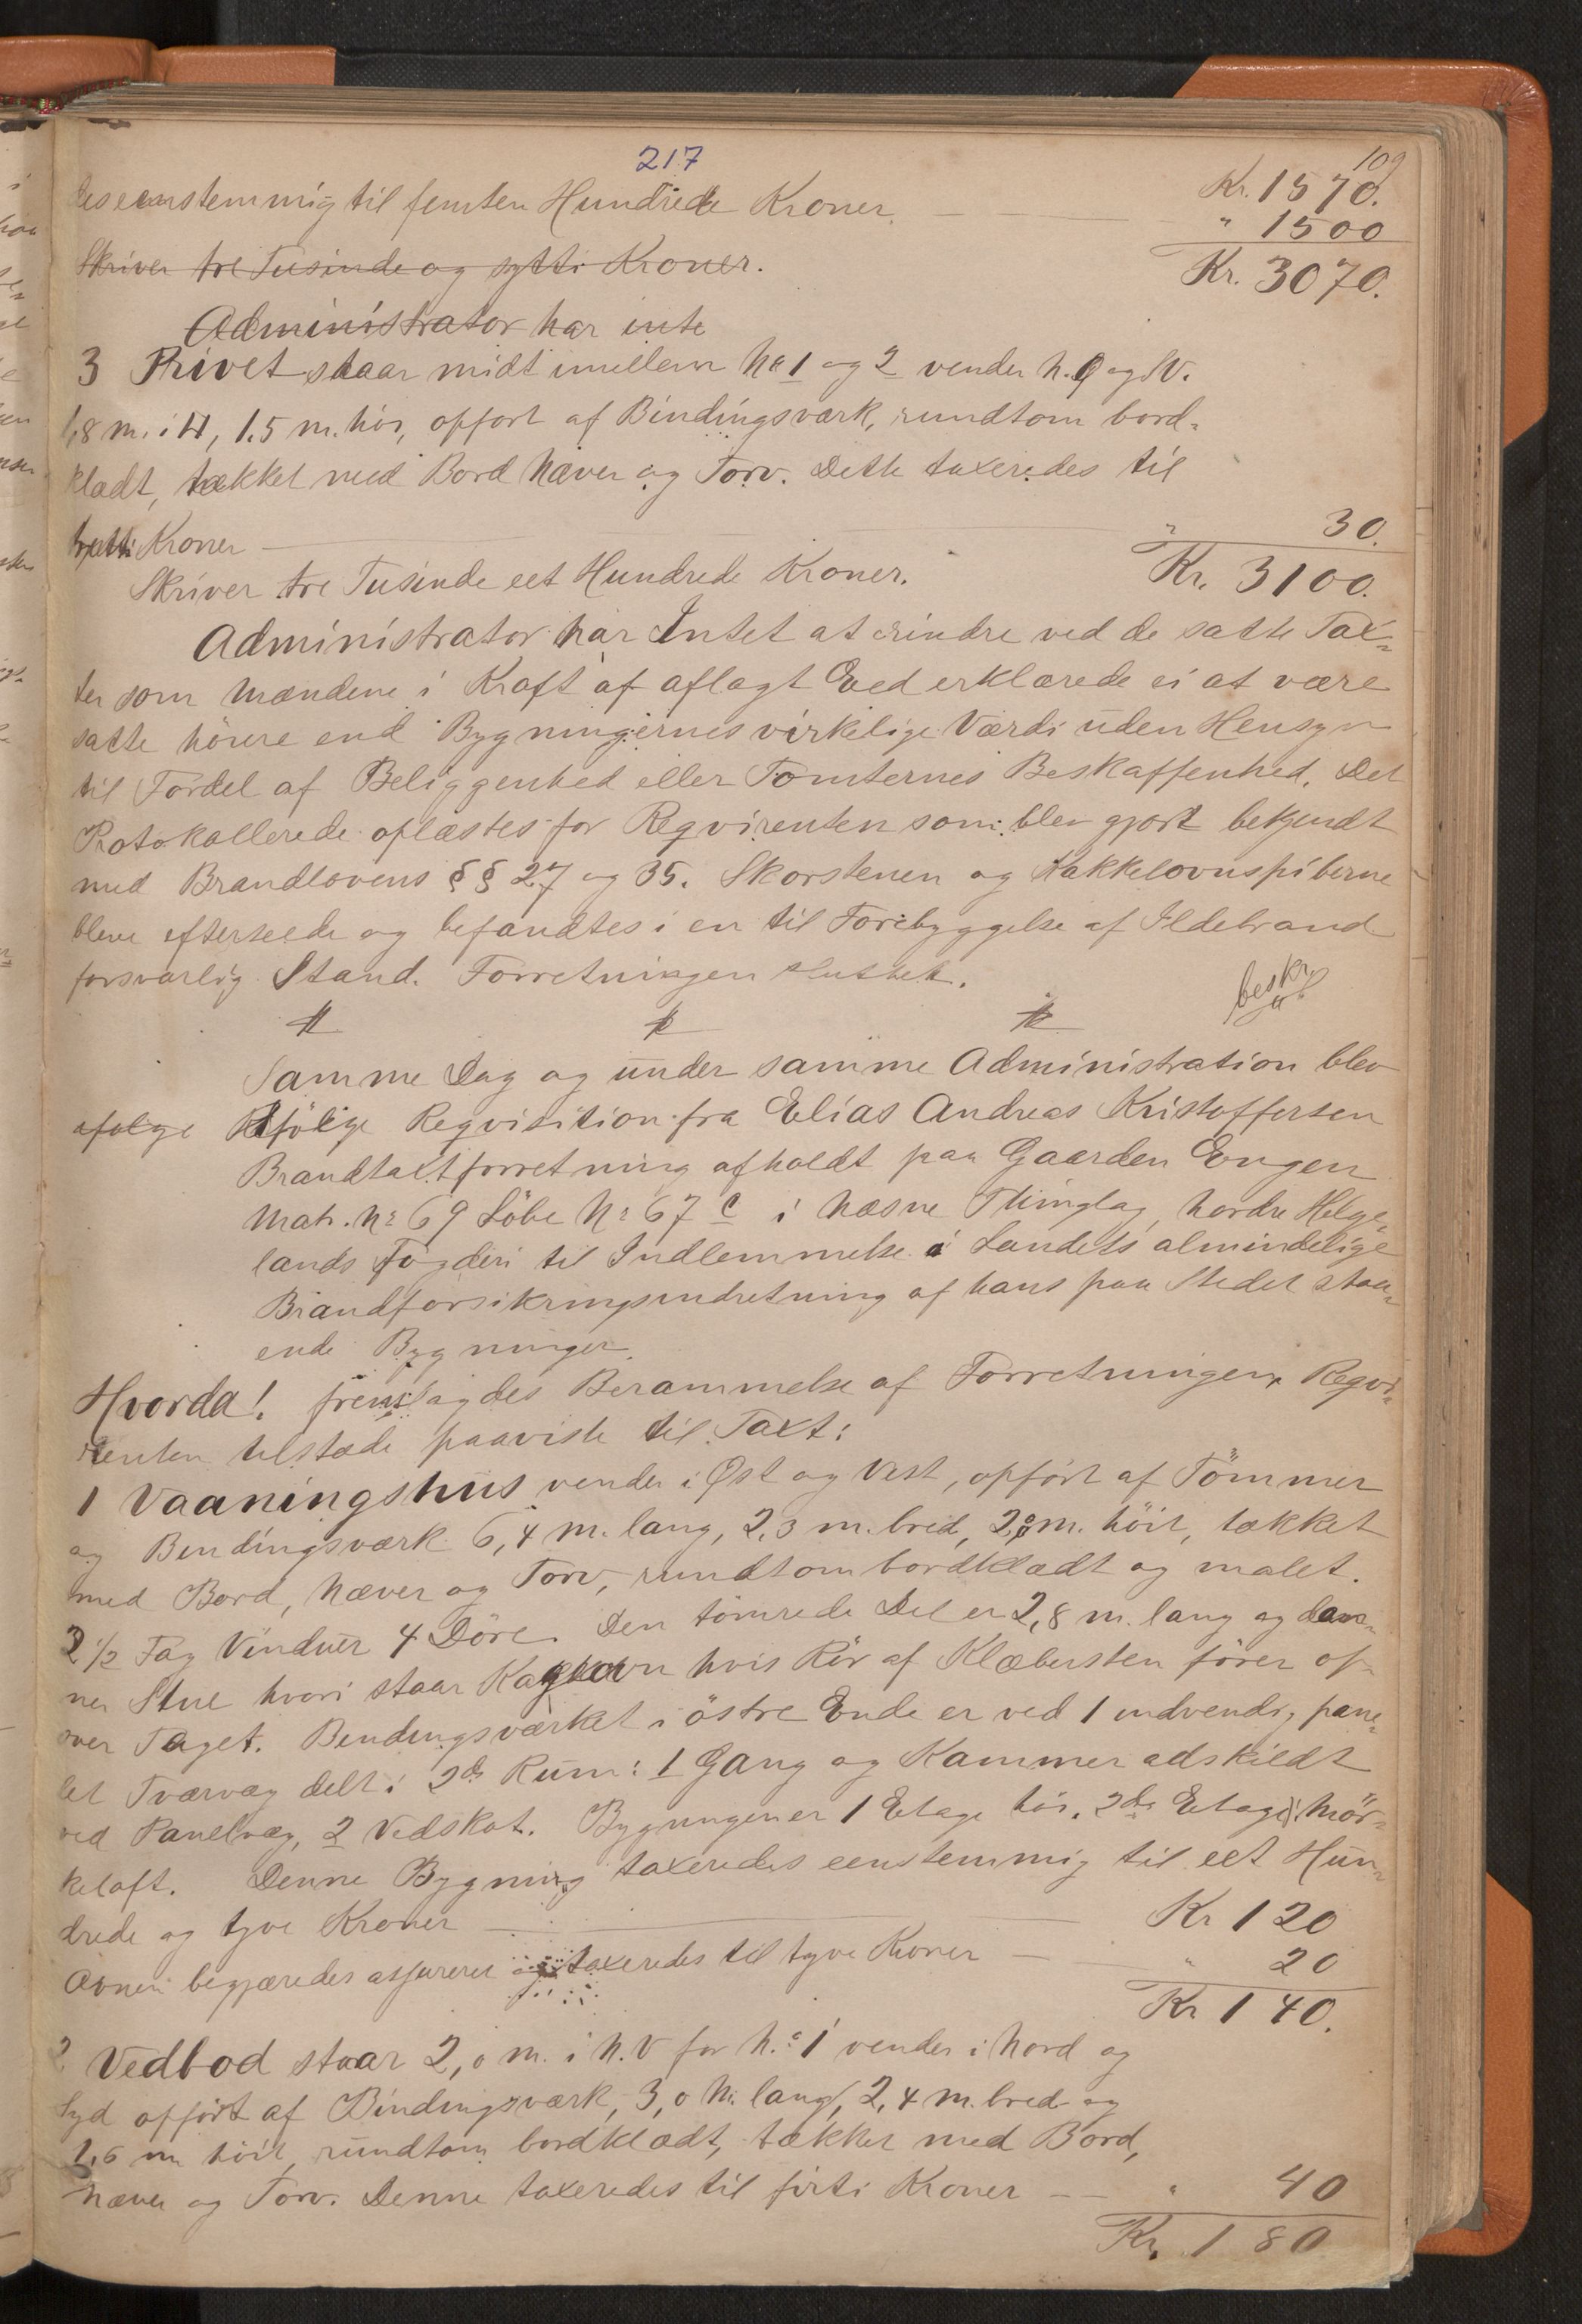 217
109
des eenstemmig til femten Hundrede Kroner. Kr. 1570.
" 1500
Skriver tre Tusinde og sytti Kroner. Kr. 3070.
Administrator har inte
3 Privet staar midt imellem No 1 og 2 vender N.Ø og S.V.
1,8 m. i H, 1.5 m. höi, opfört af Bindingsværk, rundtom bord-
klædt, tækket med Bord Næver og Torv. Dette taxeredes til
tretti Kroner " 30.
Skriver tre Tusinde eet Hundrede Kroner. Kr. 3100.
Administrator har Intet at erindre ved de satte Tax-
ter som Mændene i Kraft af aflagt Eed erklærede ei at være
satte höiere end Bygningernes virkelige Værdi uden Hensyn
til Fordel af Beliggenhed eller Tomternes Beskaffenhed. Det
Protokollerede oplæstes for Reqvirenten som blev gjort bekjendt
med Brandlovens §§ 27 og 35. Skorstenen og Kakkelovnspiberne
bleve efterseede og befandtes i en til Forebyggelse af Ildebrand
forsvarlig Stand. Forretningen sluttet.
beskr
Samme Dag og under samme Administration blev
ifølge Rifölge Reqvisition fra Elias Andreas Kristoffersen
Brandtaxtforretning afholdt paa Gaarden Engen
Matr. No 69 Löbe No 67 c i Næsne Thinglag, Nordre Helge-
lands Fogderi til Indlemmelse i Landets almindelige
Brandforsikringsindretning af hans paa Stedet staa-
ende Bygninger.
Hvorda! fremlagdes Berammelse af Forretningen. Reqvi-
renten tilstæde paaviste til Taxt:
1 Vaaningshus vender i Øst og Vest, opfört af Tömmer
og Bendingsværk 6,4 m. lang, 2,3 m. bred, 2,0 m. höit, tækket
med Bord, Næver og Torv, rundtom bordklædt og malet.
2 1/2 Fag Vinduer 4 Döre. Den tömrede Del er 2,8 m. lang og dan-
ner Stue hvori staar Kagkovn hvis Rör af Klæbersten förer op
over Taget. Bendingsværket i östre Ende er ved 1 indvendig pane-
let Tværvæg delt i 2de Rum: 1 Gang og Kammer adskildt
ved Panelvæg, 2 Vedskot. Bygningen er 1 Etage höi. 2den Etage: Mör-
keloft. Denne Bygning taxeredes eenstemmig til eet Hun-
drede og tyve Kroner Kr 120
Ovnen begjæredes assureret og taxeredes til tyve Kroner " 20
Kr 140.
2. Vedbod staar 2,0 m. i N.V for No 1 vender i Nord og
Syd opfört af Bindingsværk, 3,0 m. lang, 2,4 m. bred og
1,6 m höit, rundtom bordklædt, tækket med Bord,
Næver og Torv. Denne taxeredes til firti Kroner " 40
Kr. 180